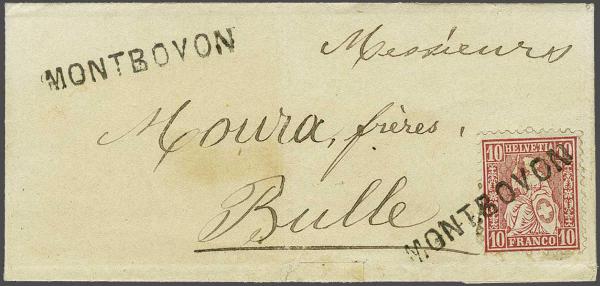 MONTBOVON
Messieurs
Moura, frères,
Bulle
10 HELVETIA 10
MONTBOVON
10 FRANCO 10